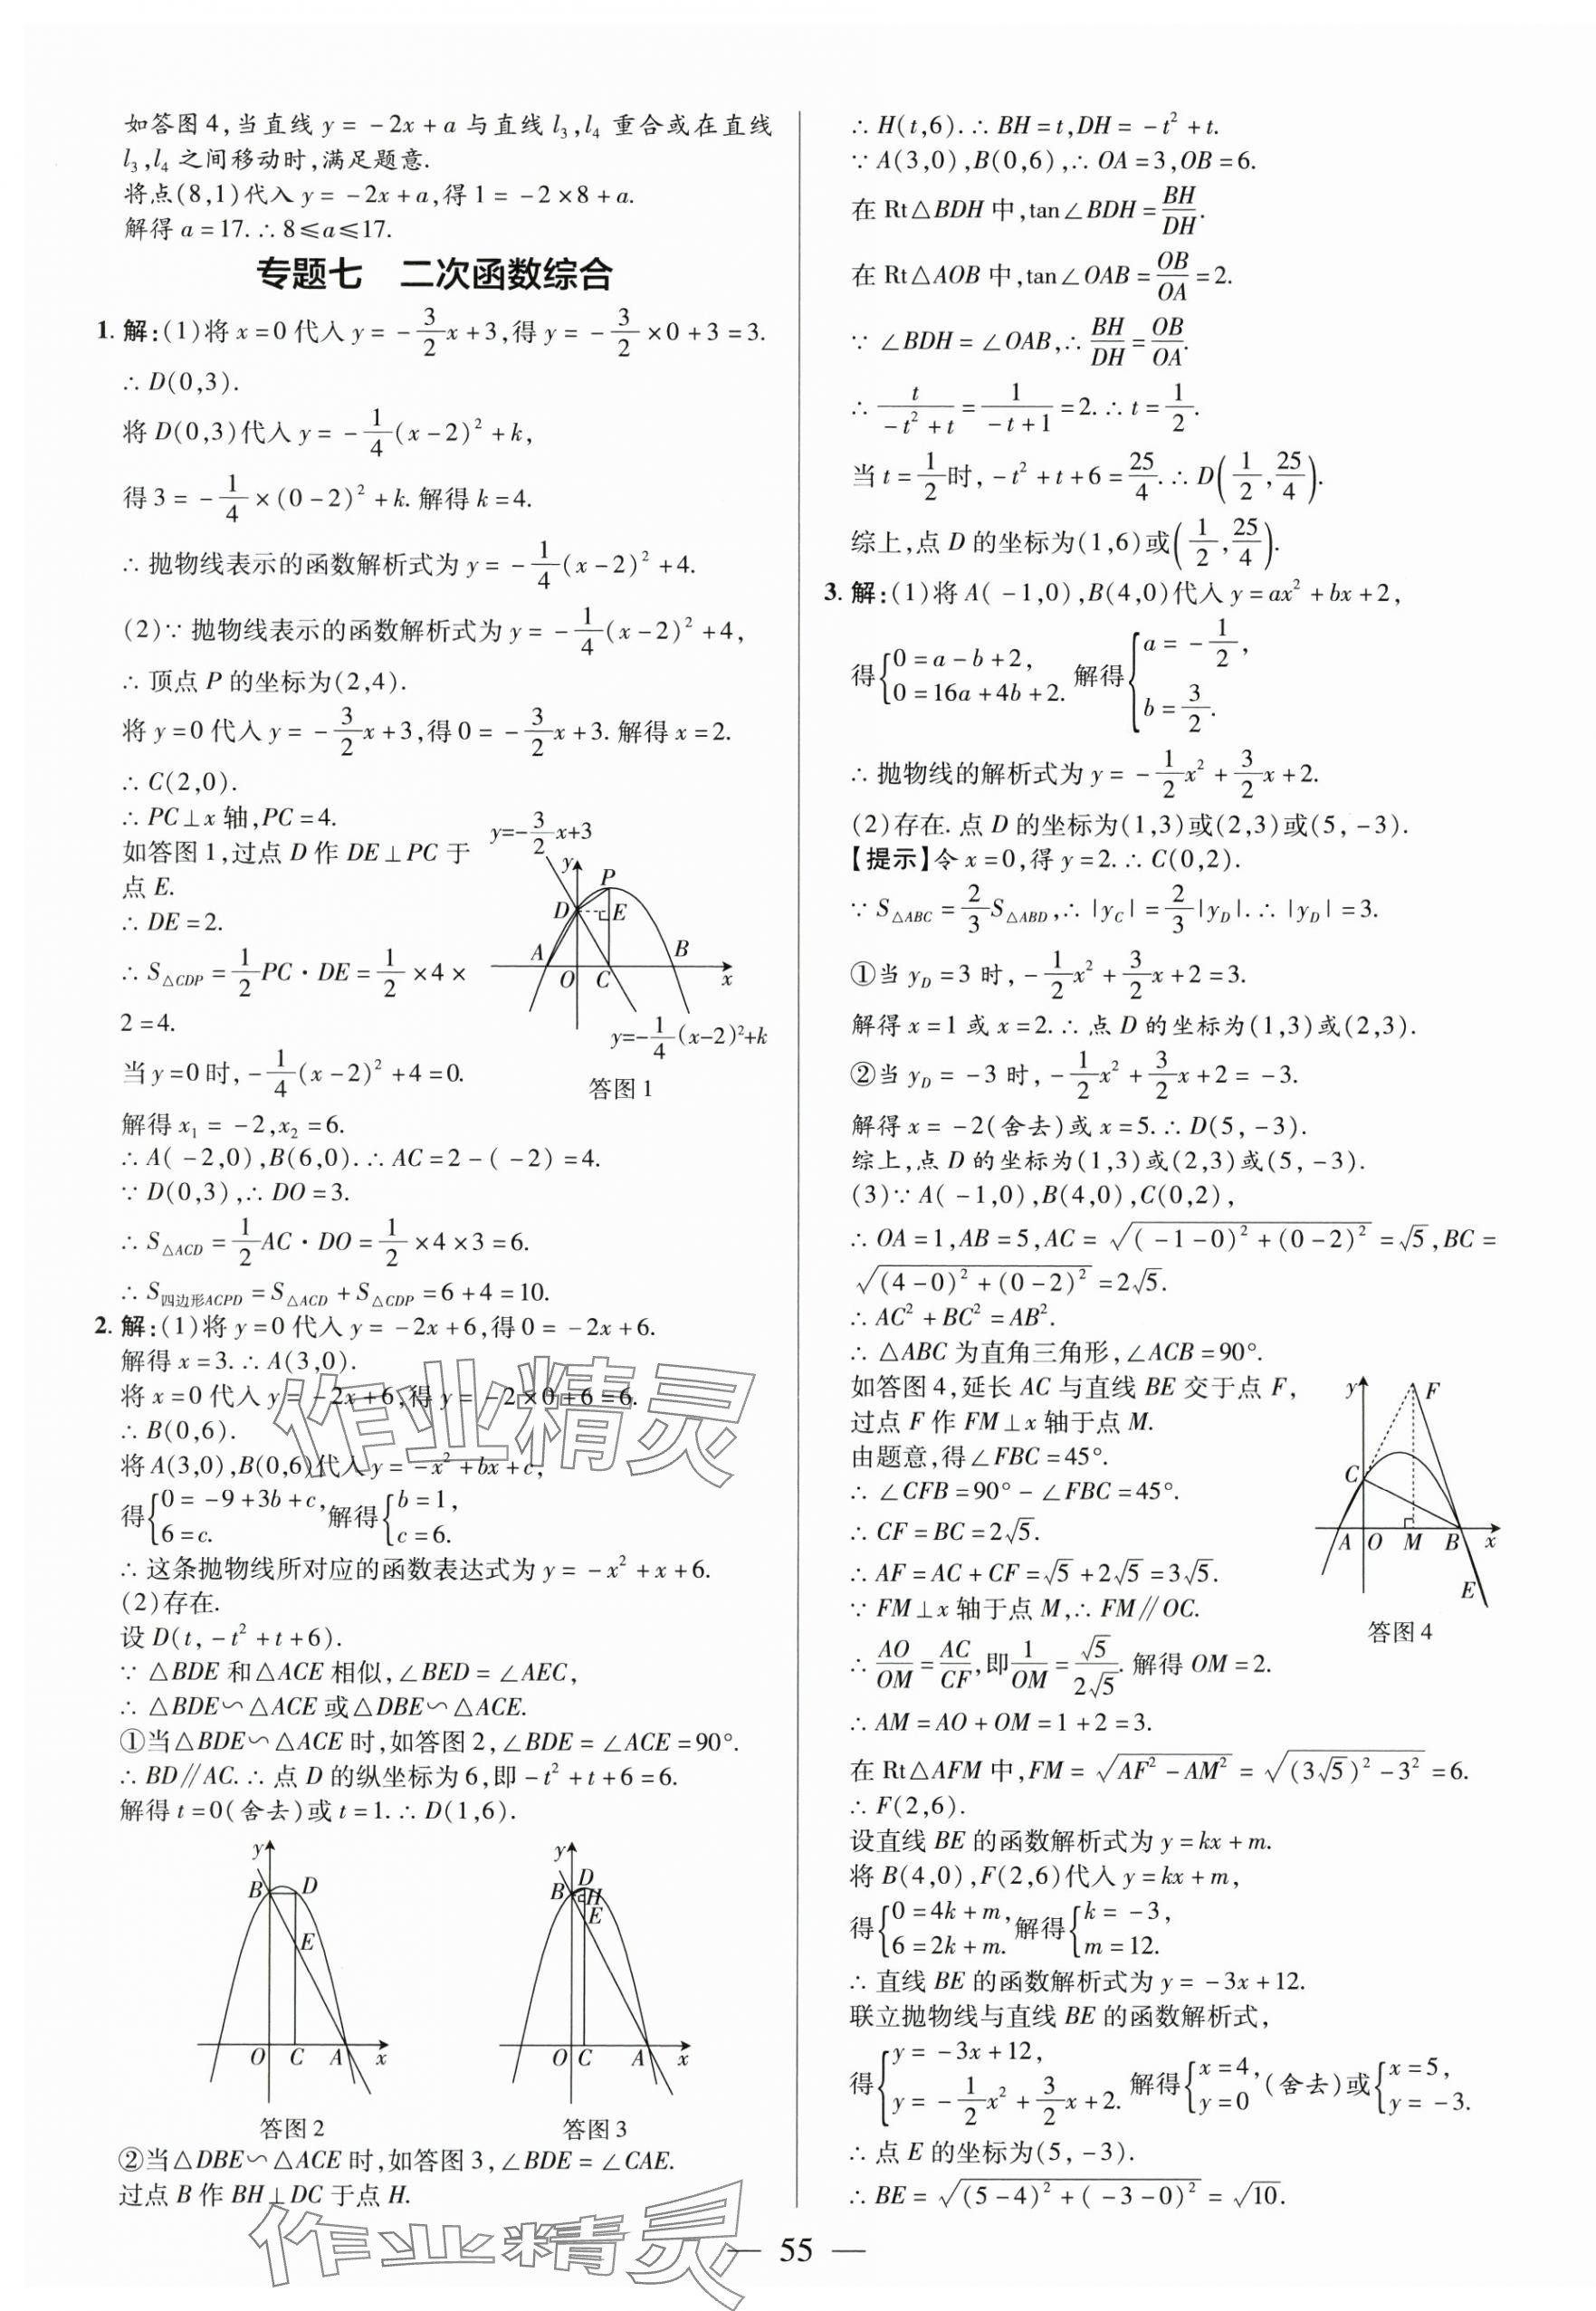 如答图4,当直线 y=-2x+a 与直线 l₃,l₄ 重合或在直线
l₃,l₄ 之间移动时,满足题意.
将点(8,1)代入 y=-2x+a,得1=-2×8+a.
解得 a=17.∴8≤a≤17.
专题七 二次函数综合
1. 解:(1)将 x=0 代入 y=-3/2x+3,得 y=-3/2×0+3=3.
∴D(0,3).
将 D(0,3)代入 y=-1/4(x-2)²+k,
得 3=-1/4×(0-2)²+k.解得 k=4.
∴抛物线表示的函数解析式为 y=-1/4(x-2)²+4.
(2)∵抛物线表示的函数解析式为 y=-1/4(x-2)²+4,
∴顶点 P 的坐标为(2,4).
将 y=0 代入 y=-3/2x+3,得 0=-3/2x+3.解得 x=2.
∴C(2,0).
∴PC⊥x 轴,PC=4.
如答图1,过点 D 作 DE⊥PC 于
点 E.
∴DE=2.
∴S△CDP=1/2PC·DE=1/2×4×
2=4.
当 y=0 时,-1/4(x-2)²+4=0.
y=-3/2x+3
y
P
D
E
A
B
O
C
x
y=-1/4(x-2)²+k
答图1
解得 x₁=-2,x₂=6.
∴A(-2,0),B(6,0).∴AC=2-(-2)=4.
∵D(0,3),∴DO=3.
∴S△ACD=1/2AC·DO=1/2×4×3=6.
∴S四边形ACPD=S△ACD+S△CDP=6+4=10.
2. 解:(1)将 y=0 代入 y=-2x+6,得 0=-2x+6.
解得 x=3.∴A(3,0).
将 x=0 代入 y=-2x+6,得 y=-2×0+6=6.
∴B(0,6).
将 A(3,0),B(0,6)代入 y=-x²+bx+c,
得{0=-9+3b+c, 6=c. 解得{b=1, c=6.
∴这条抛物线所对应的函数表达式为 y=-x²+x+6.
(2)存在.
设 D(t,-t²+t+6).
∵△BDE 和△ACE 相似,∠BED=∠AEC,
∴△BDE∽△ACE 或△DBE∽△ACE.
①当△BDE∽△ACE 时,如答图2,∠BDE=∠ACE=90°.
∴BD∥AC.∴点 D 的纵坐标为6,即-t²+t+6=6.
解得 t=0(舍去)或 t=1.∴D(1,6).
y
B
D
E
O
C
A
x
答图2
y
D
B
H
E
O
C
A
x
答图3
②当△DBE∽△ACE 时,如答图3,∠BDE=∠CAE.
过点 B 作 BH⊥DC 于点 H.
∴H(t,6).∴BH=t,DH=-t²+t.
∵A(3,0),B(0,6),∴OA=3,OB=6.
在 Rt△BDH 中,tan∠BDH=BH/DH.
在 Rt△AOB 中,tan∠OAB=OB/OA=2.
∵∠BDH=∠OAB,∴BH/DH=OB/OA.
∴t/(-t²+t)=1/(-t+1)=2.∴t=1/2.
当 t=1/2时,-t²+t+6=25/4.∴D(1/2,25/4).
综上,点 D 的坐标为(1,6)或(1/2,25/4).
3. 解:(1)将 A(-1,0),B(4,0)代入 y=ax²+bx+2,
得{0=a-b+2, 0=16a+4b+2. 解得{a=-1/2, b=3/2.
∴抛物线的解析式为 y=-1/2x²+3/2x+2.
(2)存在.点 D 的坐标为(1,3)或(2,3)或(5,-3).
【提示】令 x=0,得 y=2.∴C(0,2).
∵S△ABC=2/3S△ABD,∴|yC|=2/3|yD|.∴|yD|=3.
①当 yD=3 时,-1/2x²+3/2x+2=3.
解得 x=1 或 x=2.∴点 D 的坐标为(1,3)或(2,3).
②当 yD=-3 时,-1/2x²+3/2x+2=-3.
解得 x=-2(舍去)或 x=5.∴D(5,-3).
综上,点 D 的坐标为(1,3)或(2,3)或(5,-3).
(3)∵A(-1,0),B(4,0),C(0,2),
∴OA=1,AB=5,AC=√((-1-0)²+(0-2)²)=√5,BC=
√((4-0)²+(0-2)²)=2√5.
∴AC²+BC²=AB².
∴△ABC 为直角三角形,∠ACB=90°.
如答图4,延长 AC 与直线 BE 交于点 F,
过点 F 作 FM⊥x 轴于点 M.
由题意,得∠FBC=45°.
∴∠CFB=90°-∠FBC=45°.
∴CF=BC=2√5.
∴AF=AC+CF=√5+2√5=3√5.
∵FM⊥x 轴于点 M,∴FM∥OC.
∴AO/OM=AC/CF,即1/OM=√5/2√5.解得 OM=2.
y
F
C
A
O
M
B
x
E
答图4
∴AM=AO+OM=1+2=3.
在 Rt△AFM 中,FM=√(AF²-AM²)=√((3√5)²-3²)=6.
∴F(2,6).
设直线 BE 的函数解析式为 y=kx+m.
将 B(4,0),F(2,6)代入 y=kx+m,
得{0=4k+m, 6=2k+m. 解得{k=-3, m=12.
∴直线 BE 的函数解析式为 y=-3x+12.
联立抛物线与直线 BE 的函数解析式,
得{y=-3x+12, y=-1/2x²+3/2x+2. 解得{x=4, y=0 (舍去)或{x=5, y=-3.
∴点 E 的坐标为(5,-3).
∴BE=√((5-4)²+(-3-0)²)=√10.
作业精灵
作业精灵
— 55 —